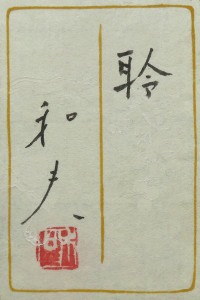 聆
和夫